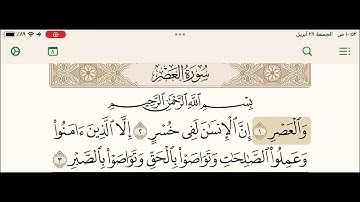 ١٠:٥٢ ص الجمعة ٢٨ أبريل ٨٩٪
٨
سُورَةُ العَصْرِ
بِسْمِ ٱللَّهِ ٱلرَّحْمَٰنِ ٱلرَّحِيمِ
وَٱلْعَصْرِ ١ إِنَّ ٱلْإِنسَٰنَ لَفِى خُسْرٍ ٢ إِلَّا ٱلَّذِينَ ءَامَنُوا۟
وَعَمِلُوا۟ ٱلصَّٰلِحَٰتِ وَتَوَاصَوْا۟ بِٱلْحَقِّ وَتَوَاصَوْا۟ بِٱلصَّبْرِ ٣